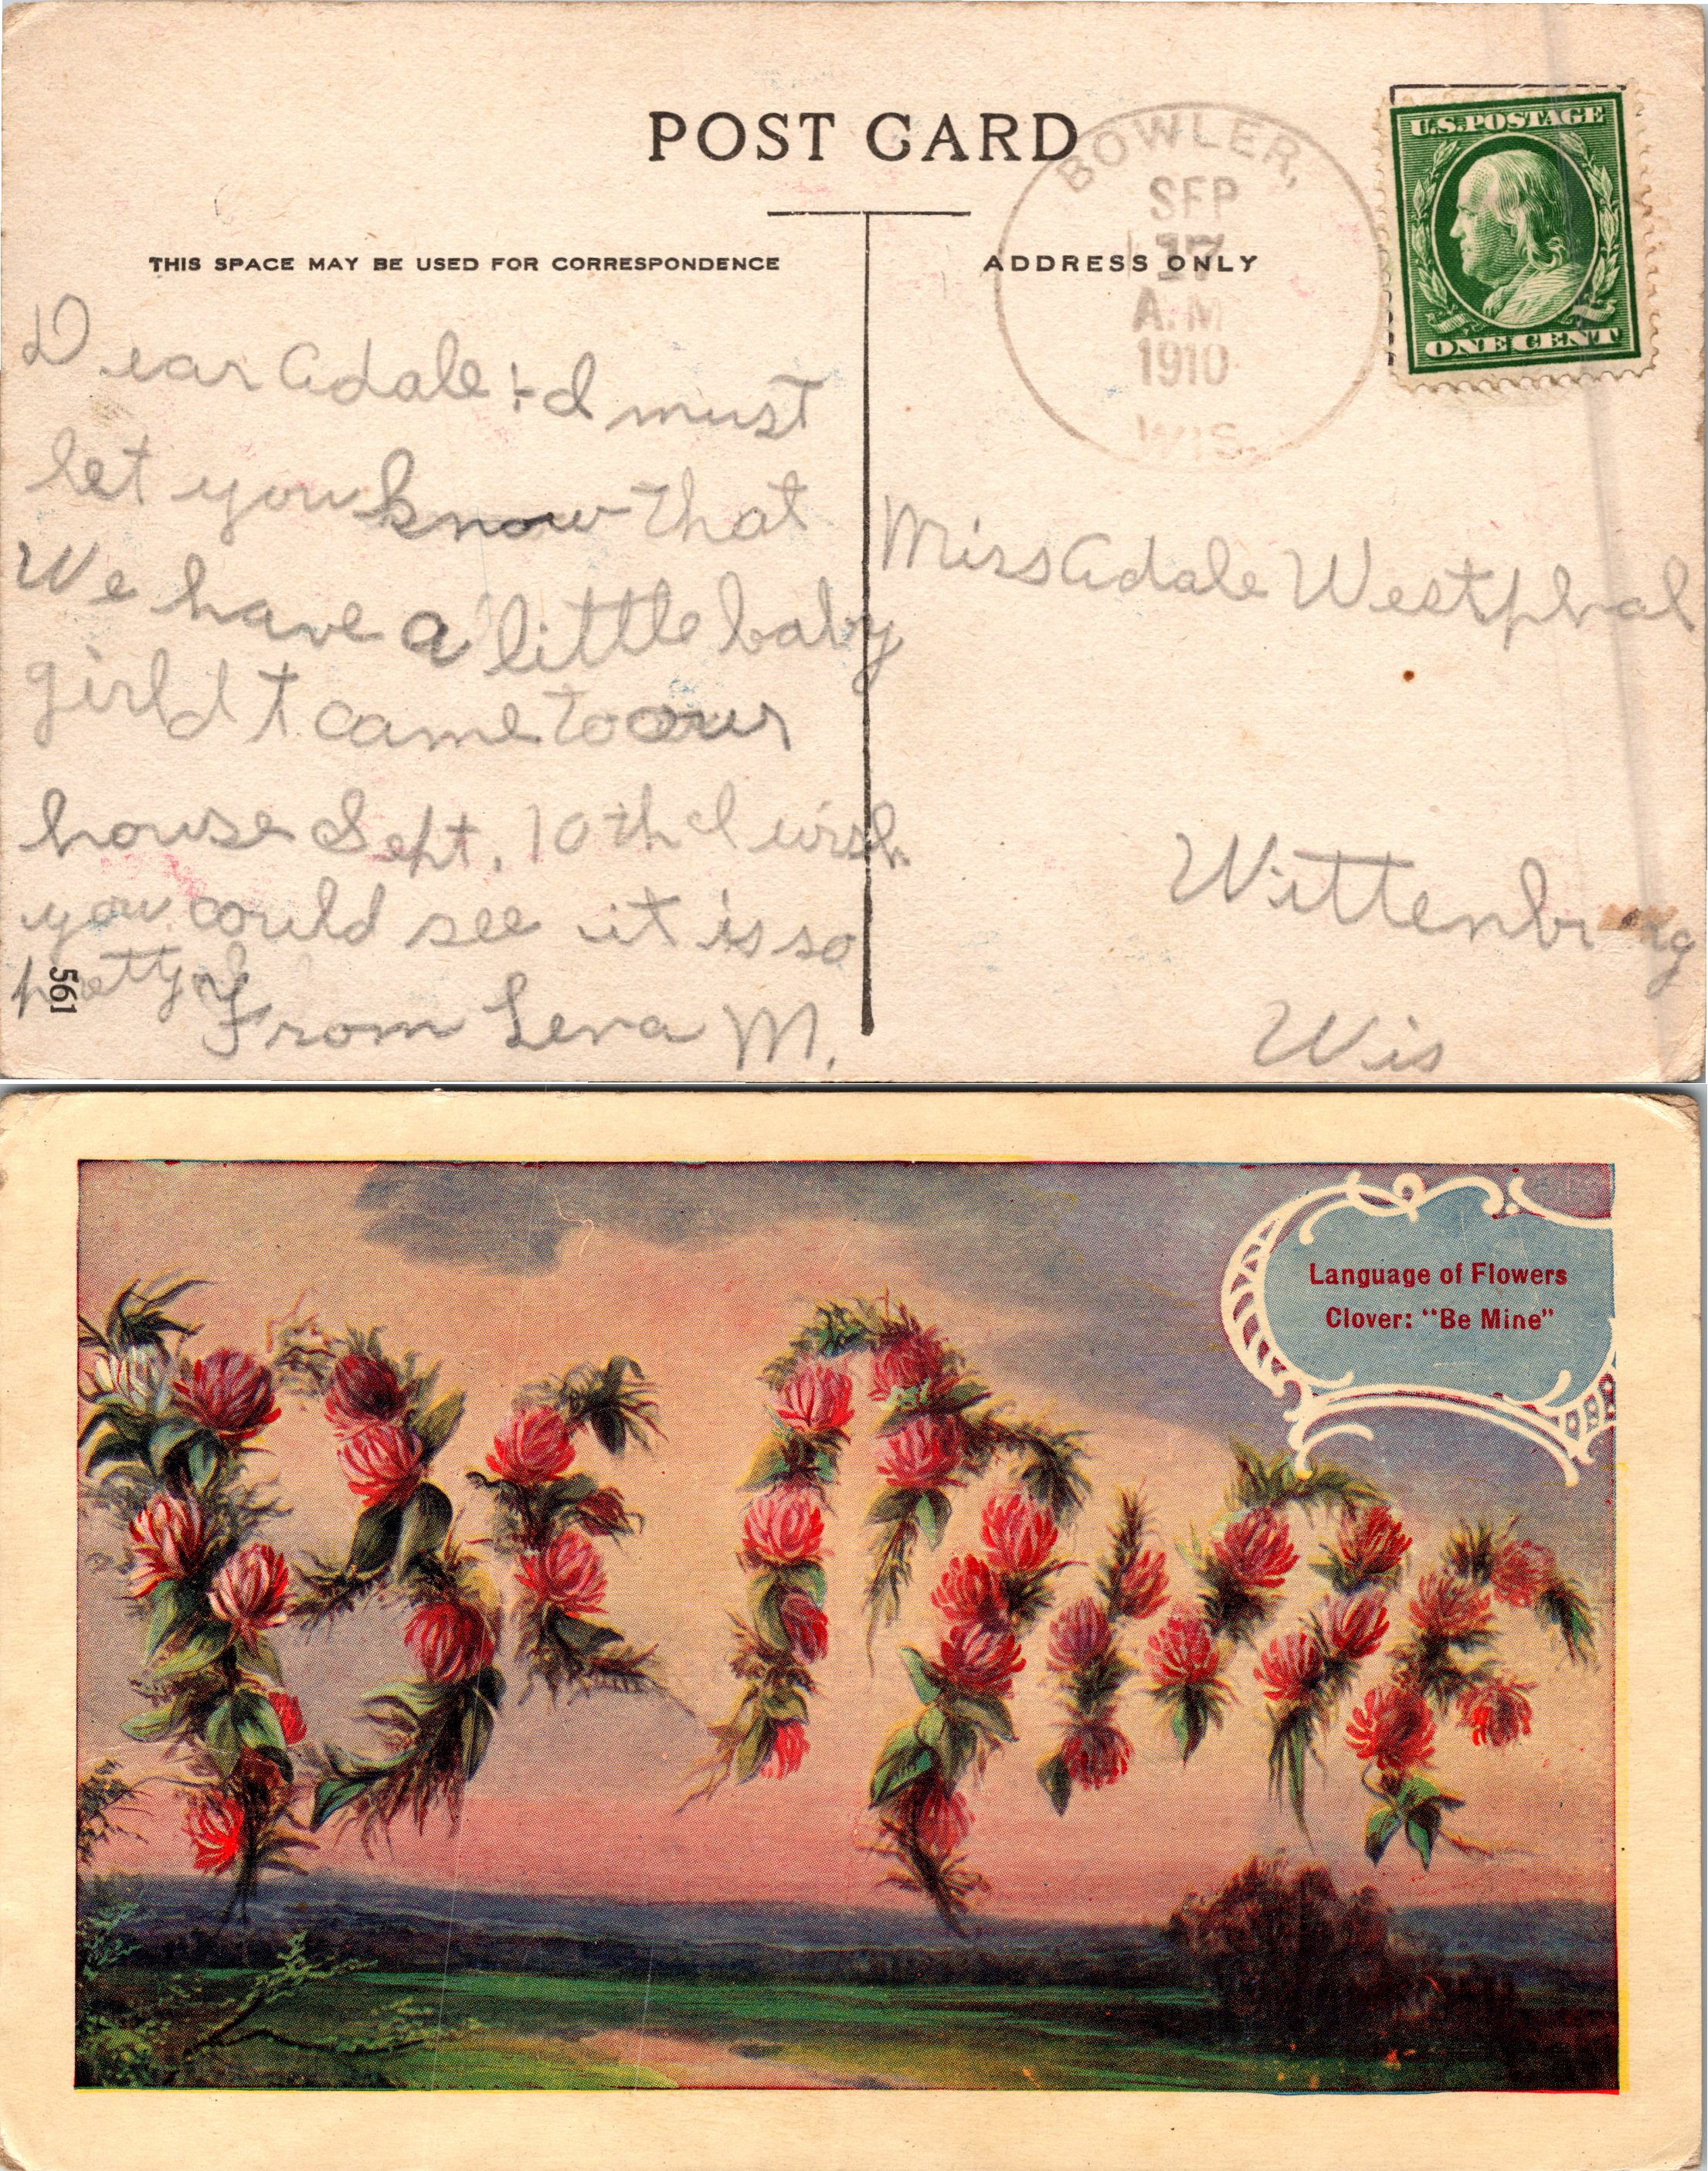 POST CARD
BOWLER,
SEP
17
A.M
1910
WIS.
U.S. POSTAGE
ONE CENT
THIS SPACE MAY BE USED FOR CORRESPONDENCE
ADDRESS ONLY
Dear Adale :- I must
let you know that
We have a little baby
girl It came to our
house Sept. 10th I wish
you could see it is so
pretty
From Lena M.
561
Miss Adale Westphal
Wittenbrg
Wis
Language of Flowers
Clover: "Be Mine"
BE MINE